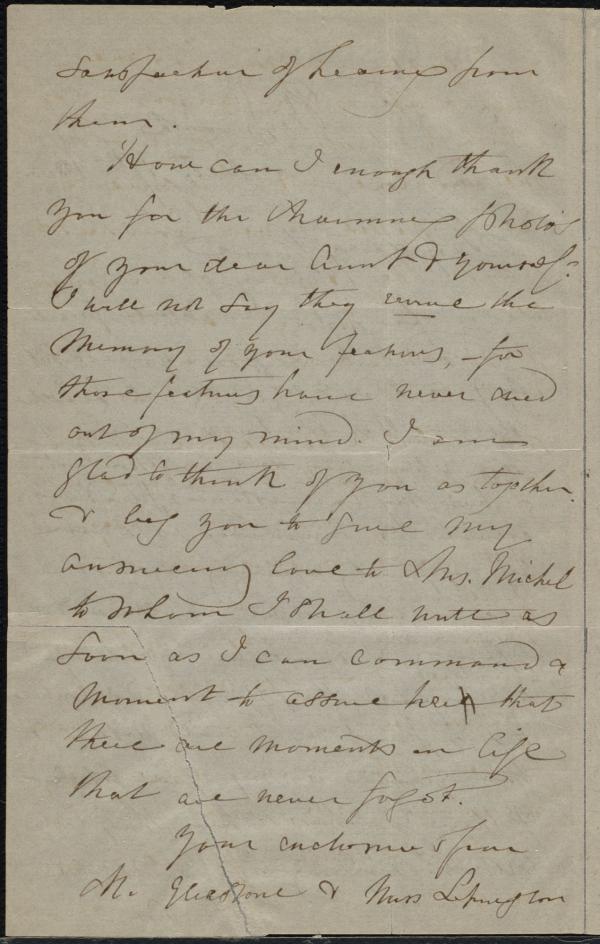 satisfaction of hearing from
them.
How can I enough thank
you for the charming photos
of your dear Aunt & yourself.
I will not say they revive the
memory of your features, - for
those features have never died
out of my mind. I am
glad to think of you as together.
& beg you to give my
answering love to Mrs. Michel
to whom I shall write as
soon as I can command a
moment to assure her that
there are moments in life
that are never forgot.
Your enclosures for
Mr. Gladstone & Miss